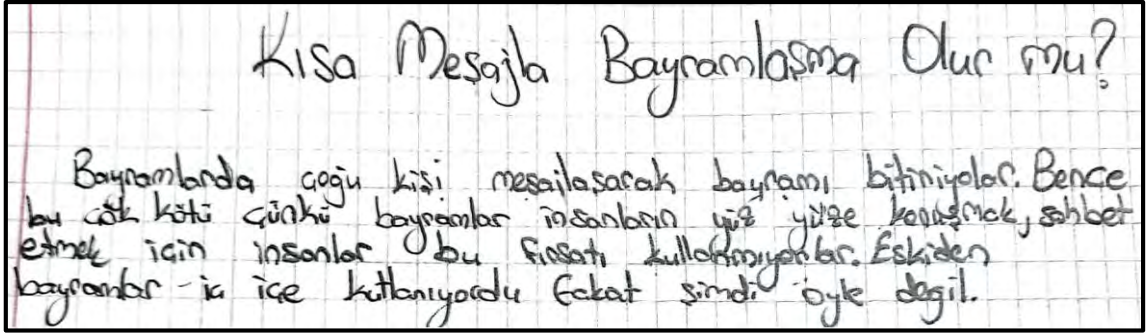 Kısa Mesajla Bayramlaşma Olur mu?
Bayramlarda çoğu kişi mesajlaşarak bayramı bitiriyolar. Bence
bu çok kötü çünkü bayramlar insanların yüz yüze konuşmak, sohbet
etmek için insanlar bu fırsatı kullanmıyorlar. Eskiden
bayramlar iç içe kutlanıyordu fakat şimdi öyle değil.